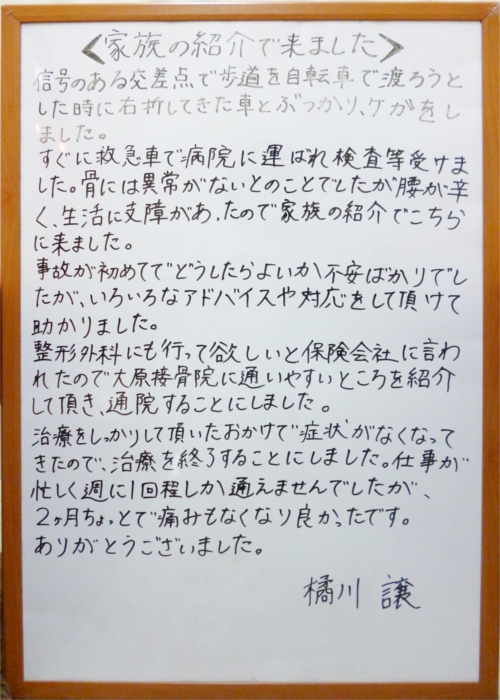 ＜家族の紹介で来ました＞
信号のある交差点で歩道を自転車で渡ろうと
した時に右折してきた車とぶつかり、ケガをし
ました。
すぐに救急車で病院に運ばれ検査等受けま
した。骨には異常がないとのことでしたが腰が辛
く、生活に支障があったので家族の紹介でこちら
に来ました。
事故が初めてでどうしたらよいか不安ばかりでし
たが、いろいろなアドバイスや対応をして頂けて
助かりました。
整形外科にも行って欲しいと保険会社に言わ
れたので大原接骨院に通いやすいところを紹介
して頂き、通院することにしました。
治療をしっかりして頂いたおかげで症状がなくなって
きたので、治療を終了することにしました。仕事が
忙しく週に1回程しか通えませんでしたが、
2ヶ月ちょっとで痛みもなくなり良かったです。
ありがとうございました。
橘川 譲